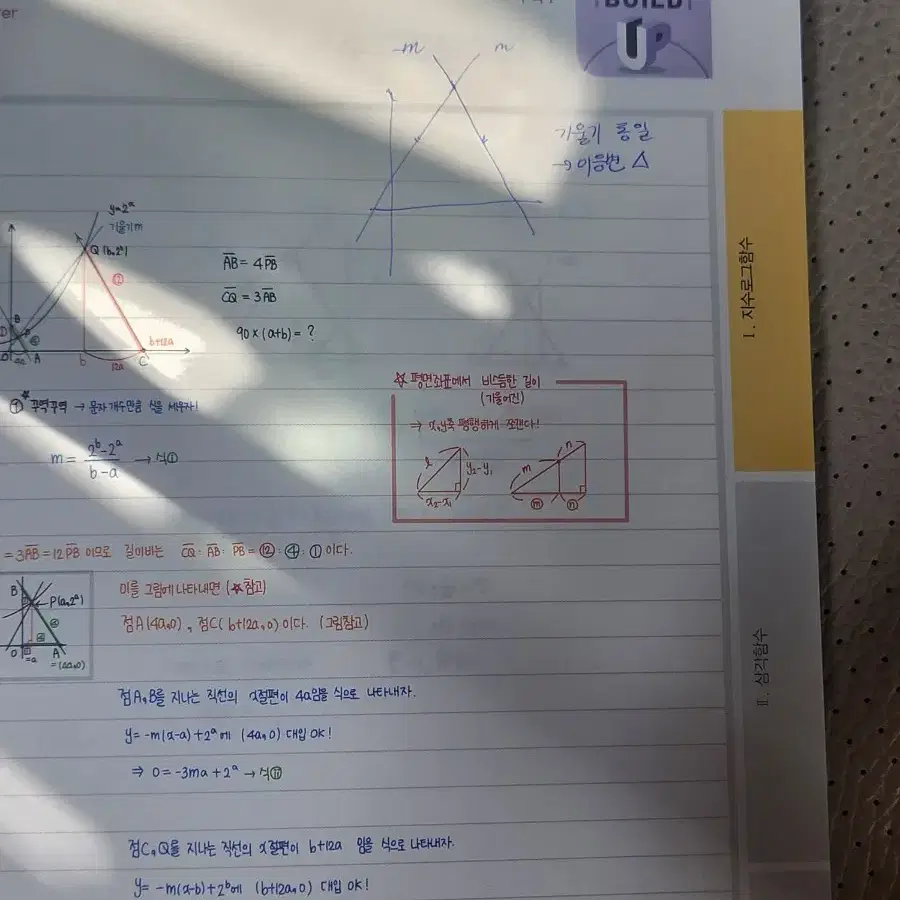 er
BUILD
UP
-m m
기울기 통일
→ 이등변 △
y=2ᵃ
기울기 m
Q(b,2ᵇ)
⑫
B
P
④
O 4a A b 12a C b+12a
A̅B̅ = 4P̅B̅
C̅Q̅ = 3A̅B̅
90×(a+b)= ?
☆ 평면좌표에서 비스듬한 길이
(기울어진)
⇒ x,y축 평행하게 쪼갠다!
l y₂-y₁ x₂-x₁
m n ⓜ ⓝ
① 꾸역꾸역 → 문자 개수만큼 식을 세우자!
m = (2ᵇ-2ᵃ)/(b-a) → 식①
= 3A̅B̅ = 12P̅B̅ 이므로 길이비는 C̅Q̅ : A̅B̅ : P̅B̅ = ⑫ : ④ : ① 이다.
이를 그림에 나타내면 (☆참고)
점A(4a,0), 점C(b+12a,0)이다. (그림참고)
B
P(a,2ᵃ)
O =a A
=(4a,0)
점A,B를 지나는 직선의 x절편이 4a임을 식으로 나타내자.
y= -m(x-a)+2ᵃ에 (4a,0) 대입 OK!
⇒ 0=-3ma+2ᵃ → 식⑪
점C,Q를 지나는 직선의 x절편이 b+12a 임을 식으로 나타내자.
y= -m(x-b)+2ᵇ에 (b+12a,0) 대입 OK!
I. 지수로그함수
II. 삼각함수